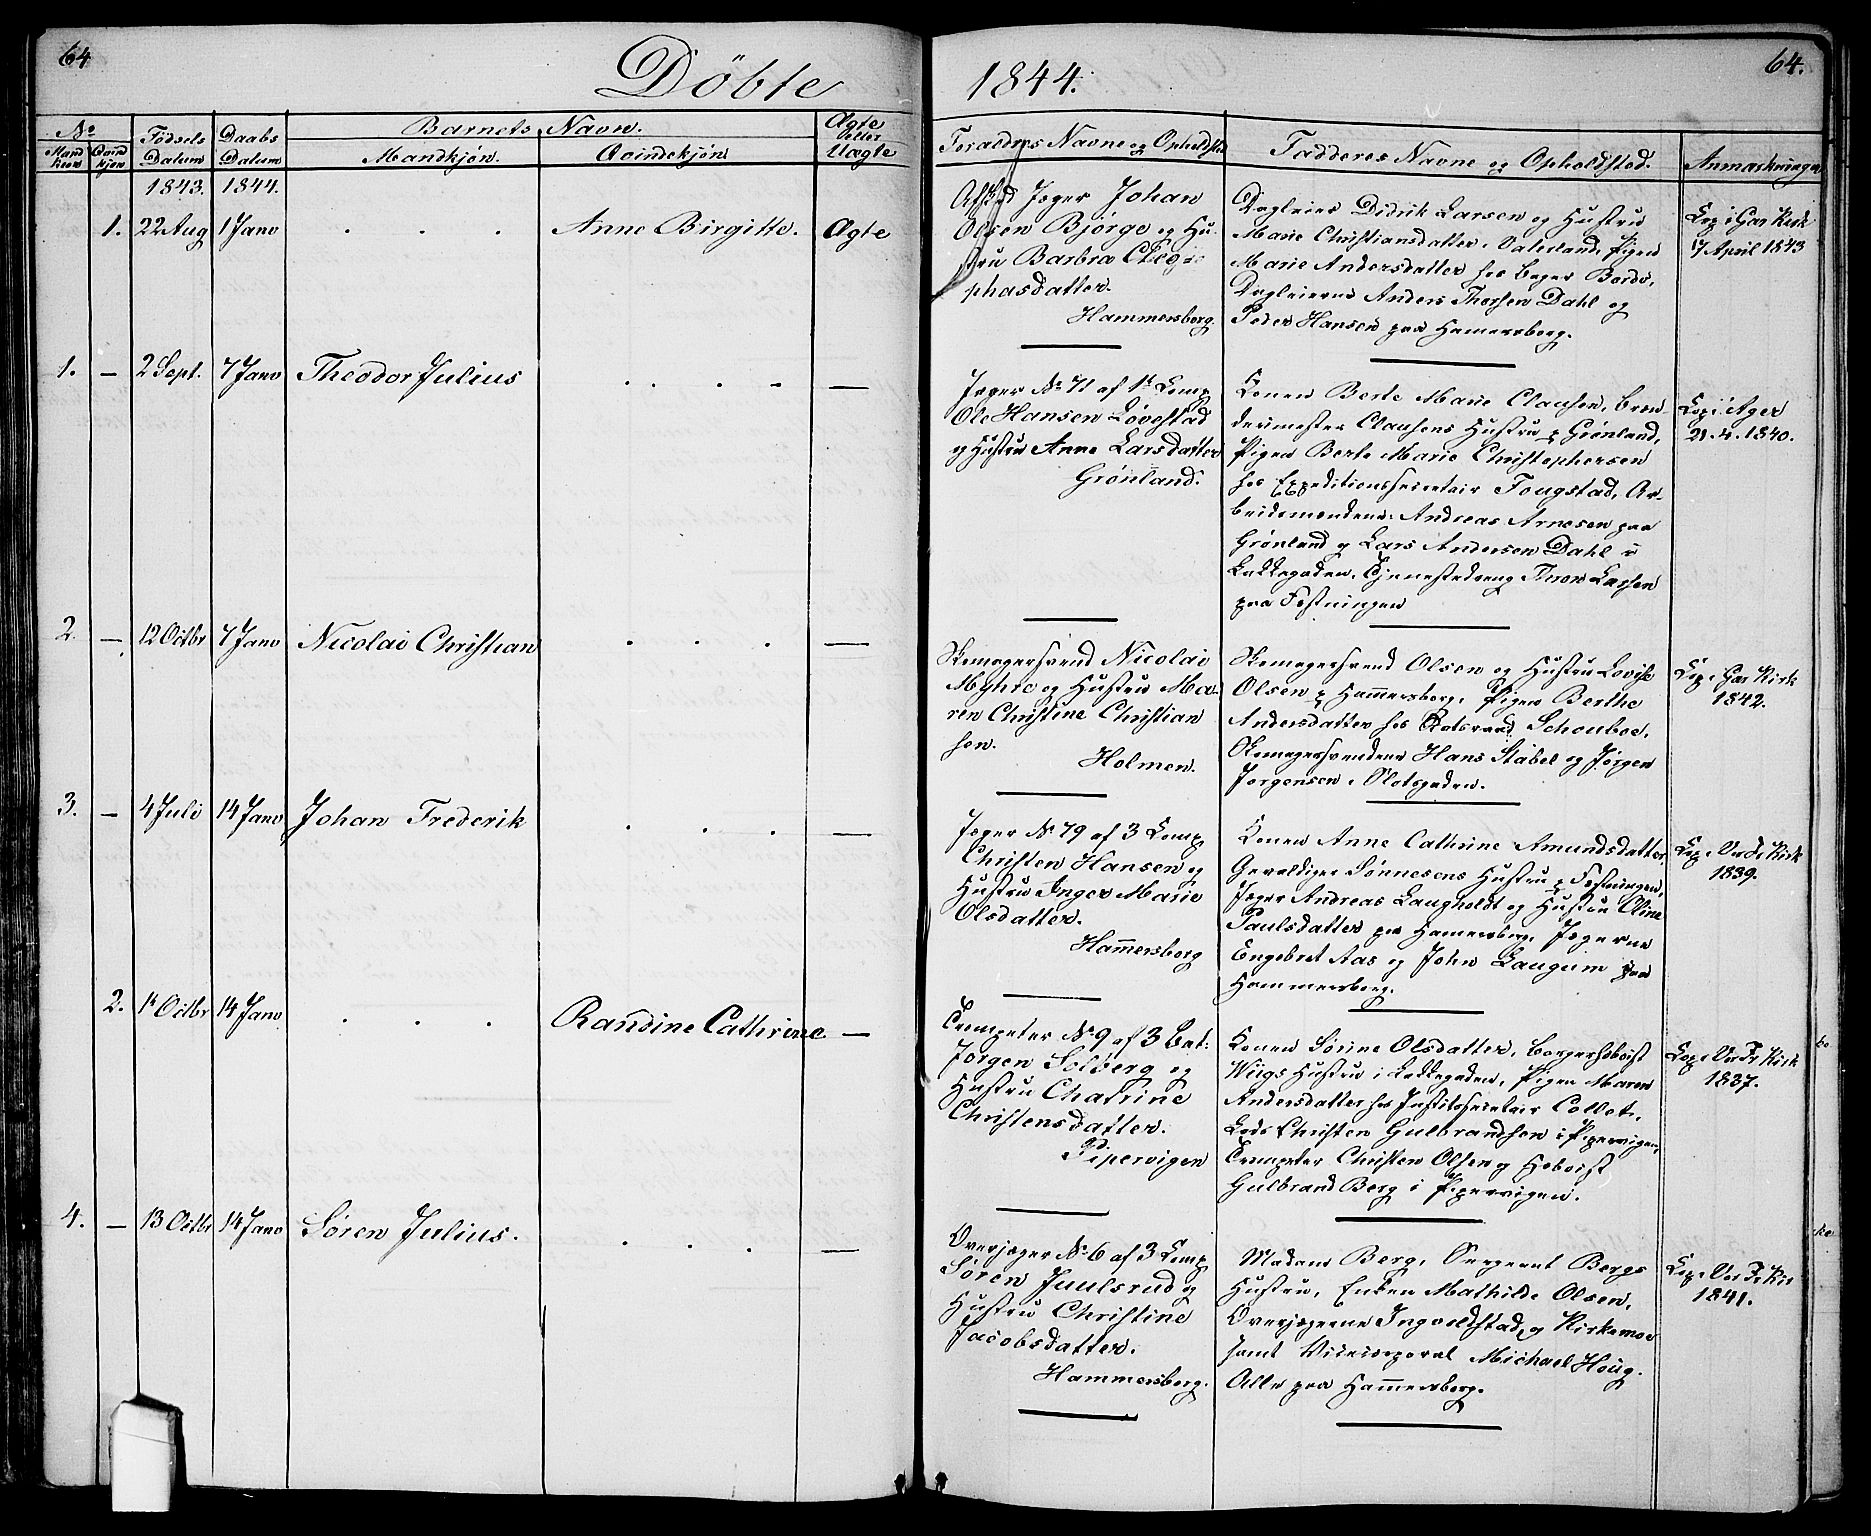 64
Døbte
1844.
64.
No
Mand kiøn
Qvind kjøn
Fødsels Datum
Daabs Datum
Barnets Navn.
Mandkjøn.
Qvindekjøn
Ægte eller Uægte
Foraldres Navne og Opholdsted
Fadderes Navne og Opholdsted.
Anmærkninger
1843. 1844.
1. 22 Aug 1 Janv . . . Anne Birgitte. Ægte
Afsked Jæger Johan
Olsen Bjørge og Hu-
stru Barbra Cleo-
phasdatter.
Hammersberg.
Dagleier Didrik Larsen og Hustru
Marie Christiansdatter, Pigen
Marie Andersdatter hos Bager Bordo,
Dagleierne Anders Thorsen Dahl og
Peder Hansen paa Hamersberg.
Cop. i Gar Kirk
17 April 1843
1. — 2 Sept. 7 Janv Theodor Julius . . . . —
Jæger No 71 af 1ste Comp
Ole Hansen Løvestad
og Hustru Anne Larsdatter
Grønland.
Konen Berte Marie Clausen,
Clausens Hustru p Grønland,
Pigen Berte Marie Christophersen
hos Expeditionssecretair Fougstad, Ar-
beidsmændene Andreas Arnesen paa
Grønland og Lars Andersen Dahl i
Lakkegaden, Tjenestedreng Thron Larsen
paa Festningen
Cop i Ager
21. 4. 1840.
2. — 12 Octbr 7 Janv Nicolai Christian . . . —
Skomagersvend Nicolai
Myhre og Hustru Ma-
ren Christine Christian
sen.
Holmen.
Skomagersvend Olsen og Hustru Lovise
Olsen p Hammersberg, Pigen Berthe
Andersdatter hos Schouboe,
Skomagersvendene Hans Stabel og Jørgen
Jørgensen i Slotsgaden.
Cop i Gar Kirk
1842.
3. — 4 Juli 14 Janv Johan Frederik . . . —
Jæger No 79 af 3 Comp
Christen Hansen og
Hustru Inger Marie
Olsdatter.
Hammersberg
Konen Anne Cathrine Amundsdatter
Gevaldiger Sønnesens Hustru p Festningen,
Jæger Andreas Laugholdt og Hustru Oline
Paulsdatter paa Hamersberg, Jægerne
Engebret Aas og John Laugum paa
Hammersberg.
Cop i Vor Fr Kirk
1839.
2. 1ste Octbr 14 Janv . . . Randine Cathrine —
Trompeter No 9 af 3 Bat:
Jørgen Solberg og
Hustru Chatrine
Christensdatter.
Pipervigen
Konen Sørine Olsdatter, Borgerhoboist
Wiigs Hustru i Lakkegaden, Pigen Maren
Andersdatter hos Justitssecretair Collet,
Lods Christen Gulbrandsen i Pipervigen,
Trompeter Christen Olsen og Hoboist
Gulbrand Berg i Pipervigen.
Cop i Vor Fr Kirk
1837.
4. — 13 Octbr 14 Janv Søren Julius. . . . —
Overjæger No 6 af 3 Comp
Søren Juulsrud og
Hustru Christine
Jacobsdatter.
Hammersberg.
Madame Berg, Sergeant Bergs
Hustru, Enken Mathilde Olsen,
Overjægerne Ingvoldstad og Kirkemoe
samt Vicecorporal Michael Houg.
Alle paa Hammersberg.
Cop i Vor Fr Kir
1841.